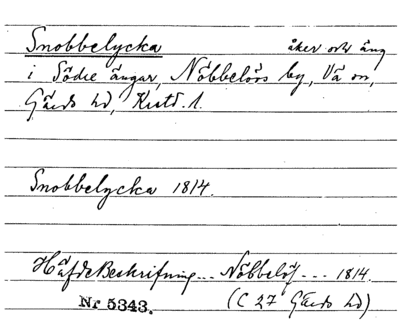 Snobbelycka åker och äng
i Södre ängar, Nöbbelövs by, Vä sn,
Gärds hd, Krstd. l.
Snobbelycka 1814.
HäfdeBeskrifning... Nöbbelöf --- 1814.
Nr 5343. (C 27 Gärds hd)